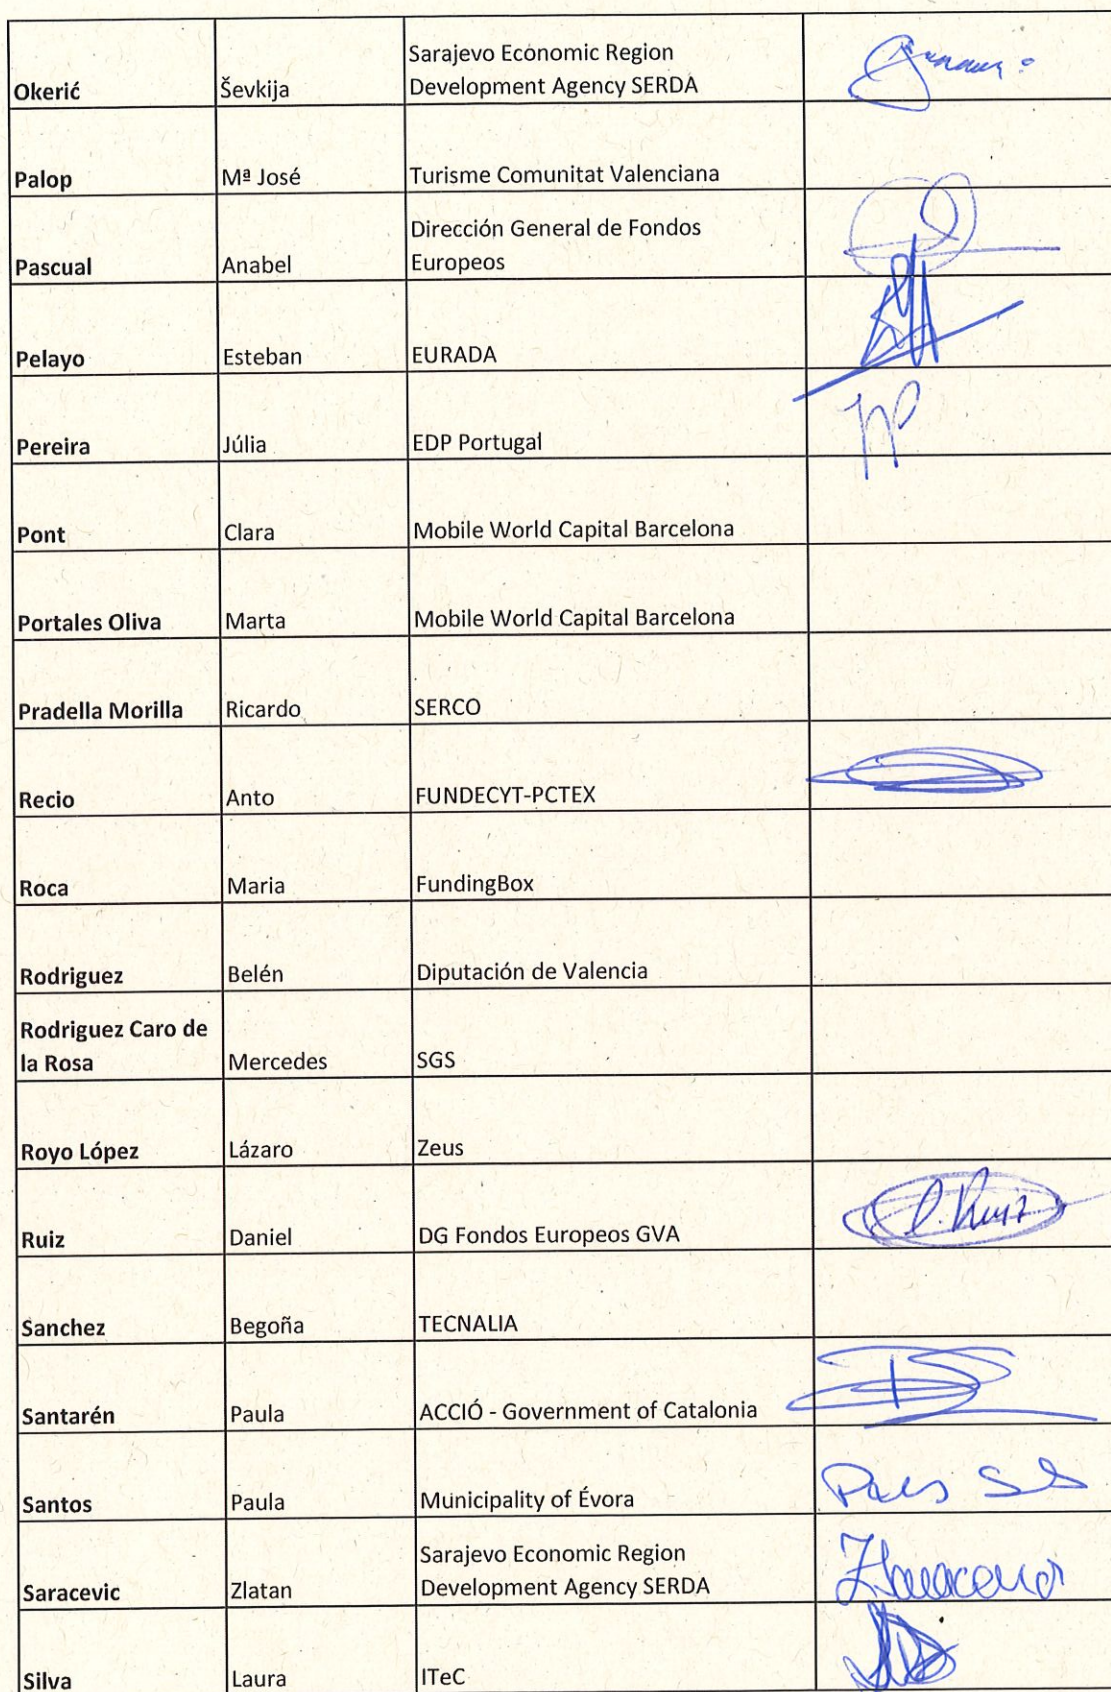 Okerić Ševkija Sarajevo Economic Region
Development Agency SERDA
Palop Mª José Turisme Comunitat Valenciana
Pascual Anabel Dirección General de Fondos
Europeos
Pelayo Esteban EURADA
Pereira Júlia EDP Portugal
Pont Clara Mobile World Capital Barcelona
Portales Oliva Marta Mobile World Capital Barcelona
Pradella Morilla Ricardo SERCO
Recio Anto FUNDECYT-PCTEX
Roca Maria FundingBox
Rodriguez Belén Diputación de Valencia
Rodriguez Caro de
la Rosa Mercedes SGS
Royo López Lázaro Zeus
Ruiz Daniel DG Fondos Europeos GVA
Sanchez Begoña TECNALIA
Santarén Paula ACCIÓ - Government of Catalonia
Santos Paula Municipality of Évora
Saracevic Zlatan Sarajevo Economic Region
Development Agency SERDA
Silva Laura ITeC